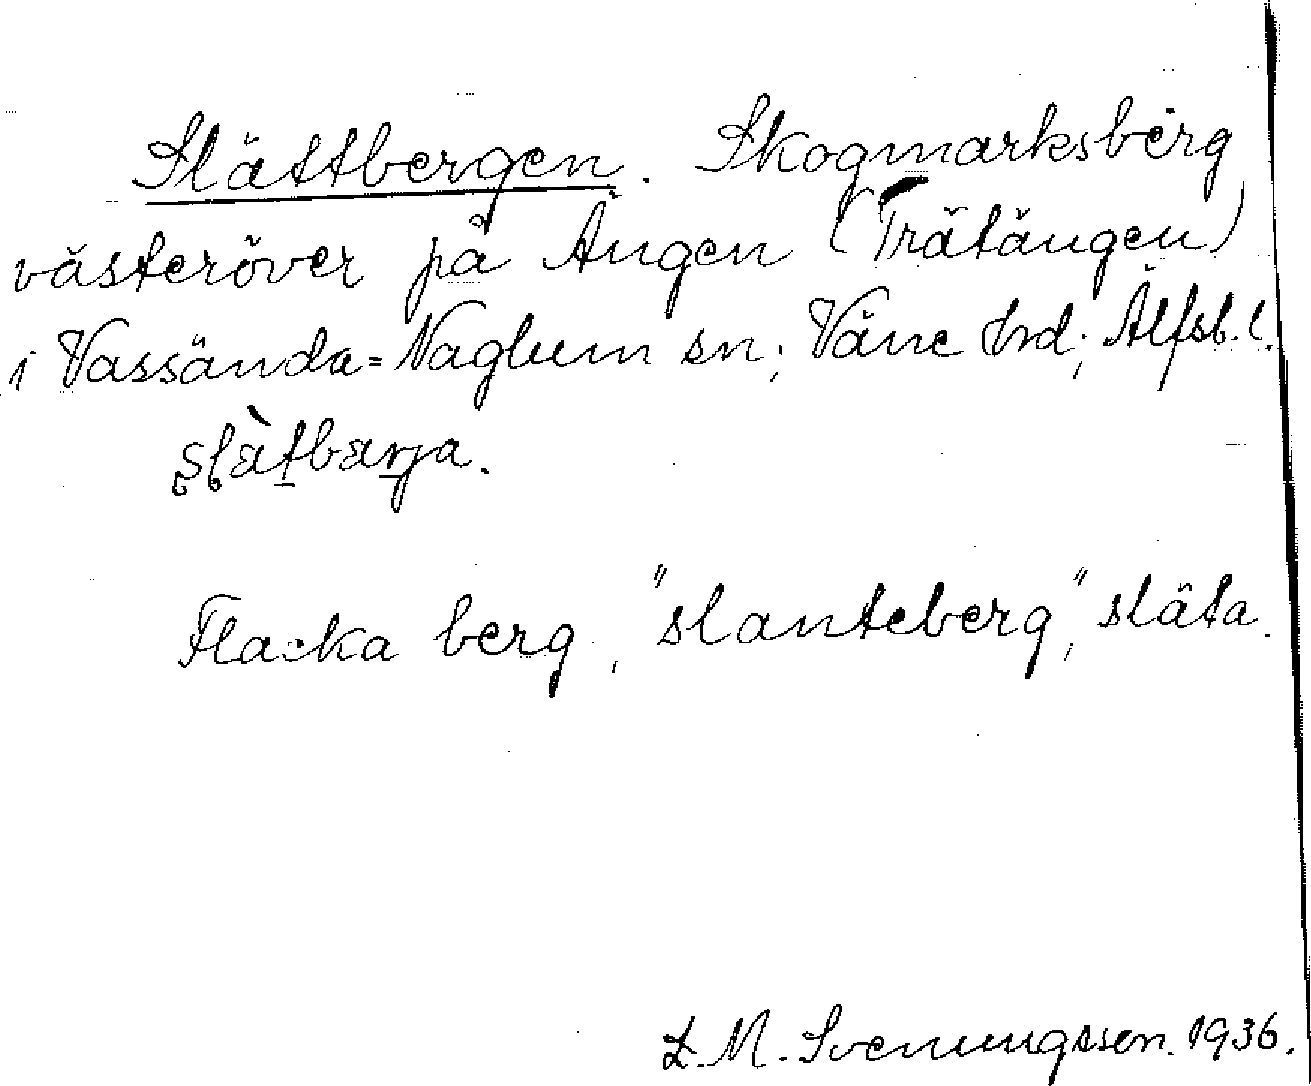 Slättbergen. Skogmarksberg
västeröver på Ängen (Trätängen)
i Vassända=Naglum sn; Väne hrd; Älfsb. l.
slätbarja.
Flacka berg, "slanteberg," släta.
L. M. Svenungsson. 1936.